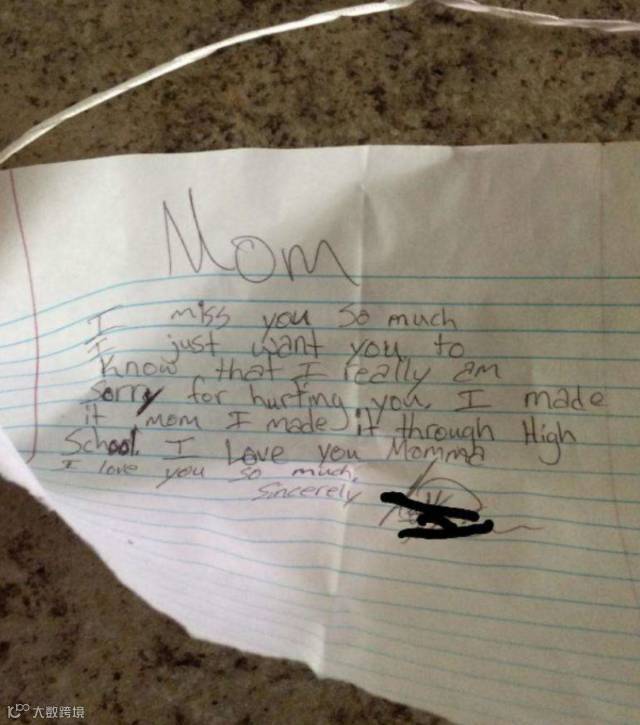 Mom
I miss you so much
I just want you to
know that I really am
sorry for hurting you, I made
it mom I made it through High
School. I Love you Momma
I love you so much.
Sincerely
大数跨境